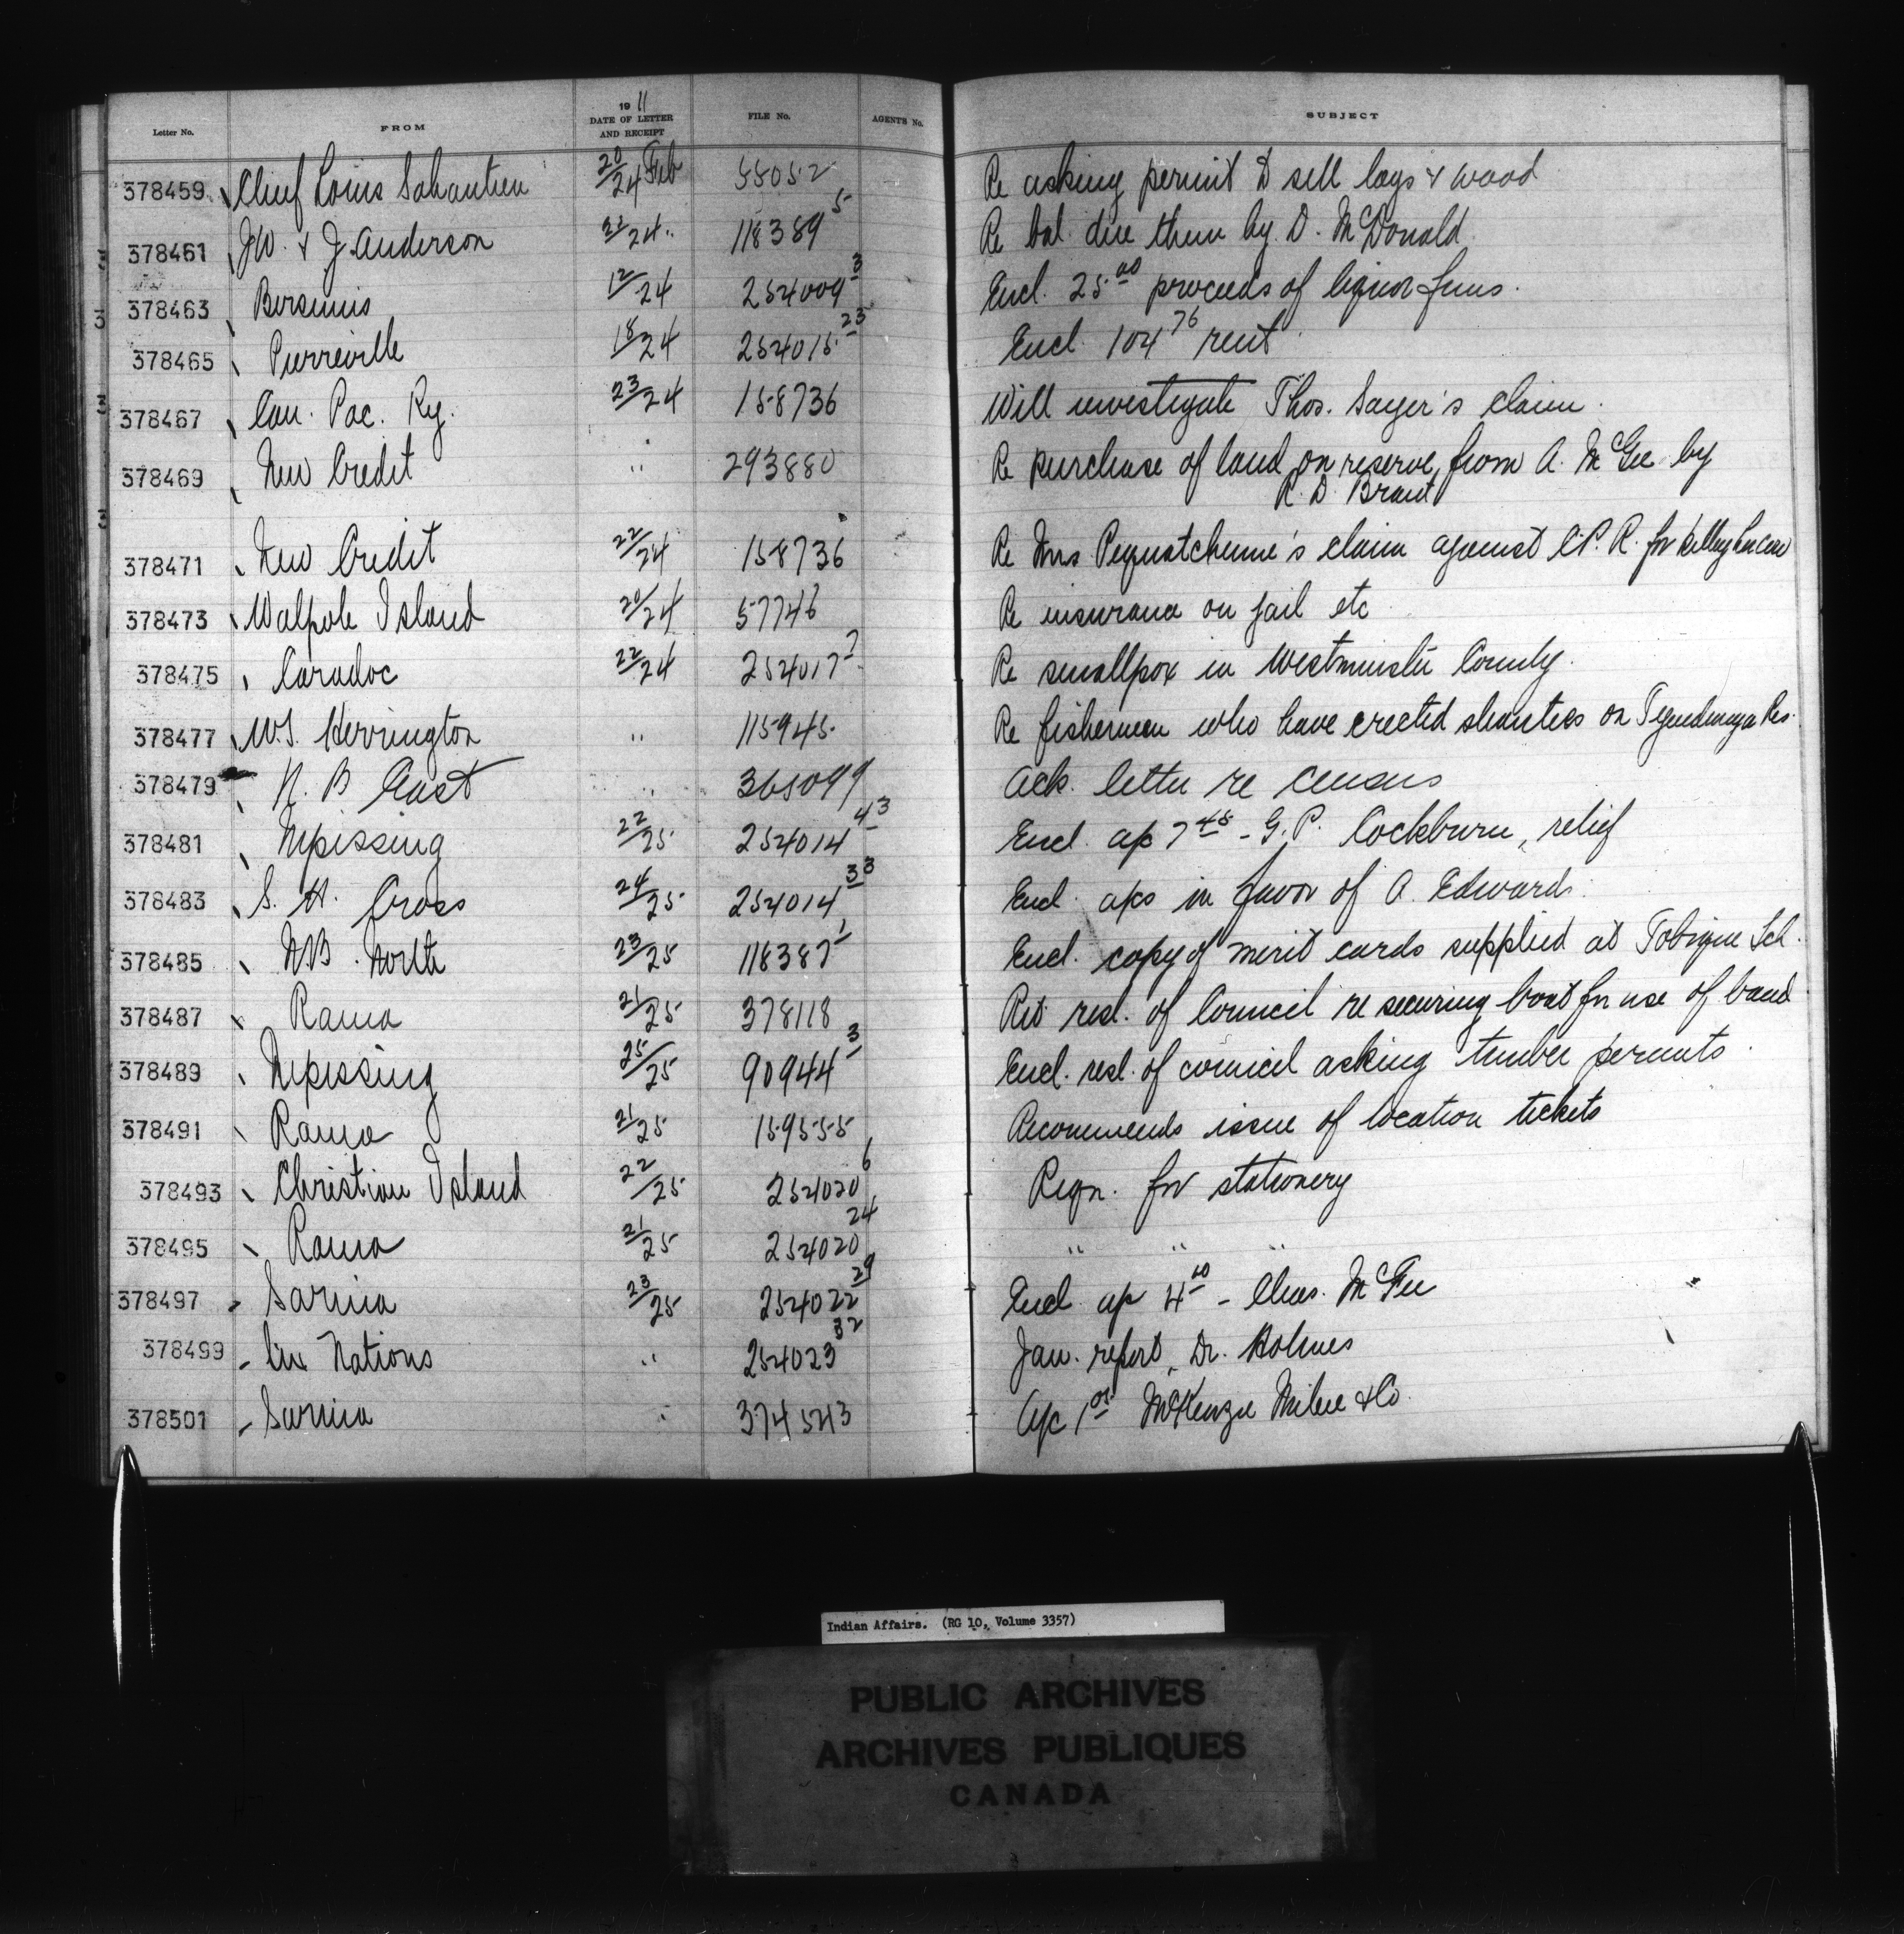 Letter No. FROM 19 11 DATE OF LETTER AND RECEIPT FILE No. AGENTS No. SUBJECT
378459 Chief Louis 20/24 Feb 55052 Re asking permit to sell logs & wood
378461 J.W. & J. Anderson 21/24 " 118389 5 Re bal. due them by D. McDonald
378463 Bersimis 12/24 254009 3 Encl. 25 00 proceeds of liquor fines.
378465 Pierreville 18/24 254015 23 Encl. 104 76 rent
378467 Can. Pac. Ry. 23/24 158736 Will investigate Thos. Sayer's claim.
378469 New Credit " 293880 Re purchase of land on reserve from A. McGee by
R. D. Brant
378471 New Credit 22/24 158736 Re Mrs claim against C.P.R. for killing her cow
378473 Walpole Island 20/24 57746 Re insurance on jail etc
378475 Caradoc 22/24 254017 7 Re smallpox in Westminster County.
378477 W.S. Herrington " 115945 Re fishermen who have erected shanties on Res.
378479 N. B East " 365099 Ack. letter re census
378481 Nipissing 22/25 254014 43 Encl. a/c 7 45 - G. P. Cockburn, relief
378483 S. H. Cross 24/25 254014 33 Encl. a/cs in favor of A. Edwards.
378485 N.B. North 23/25 118387 1 Encl. copy of merit cards supplied at Tobique Sch.
378487 Rama 21/25 378118 Ret. resl. of Council re securing boat for use of band
378489 Nipissing 25/25 90944 3 Encl. resl. of council asking timber permits.
378491 Rama 21/25 159555 Recommends issue of location tickets
378493 Christian Island 22/25 254020 6 Reqn. for stationery
378495 Rama 21/25 254020 24 " " "
378497 Sarnia 23/25 254022 29 Encl. a/c 4 00 - Chas. McFee
378499 Six Nations " 254023 32 Jan. report, Dr. Holmes
378501 Sarnia " 374543 A/c 1 05 McKenzie Milne & Co.
Indian Affairs. (RG 10, Volume 3357)
PUBLIC ARCHIVES
ARCHIVES PUBLIQUES
CANADA